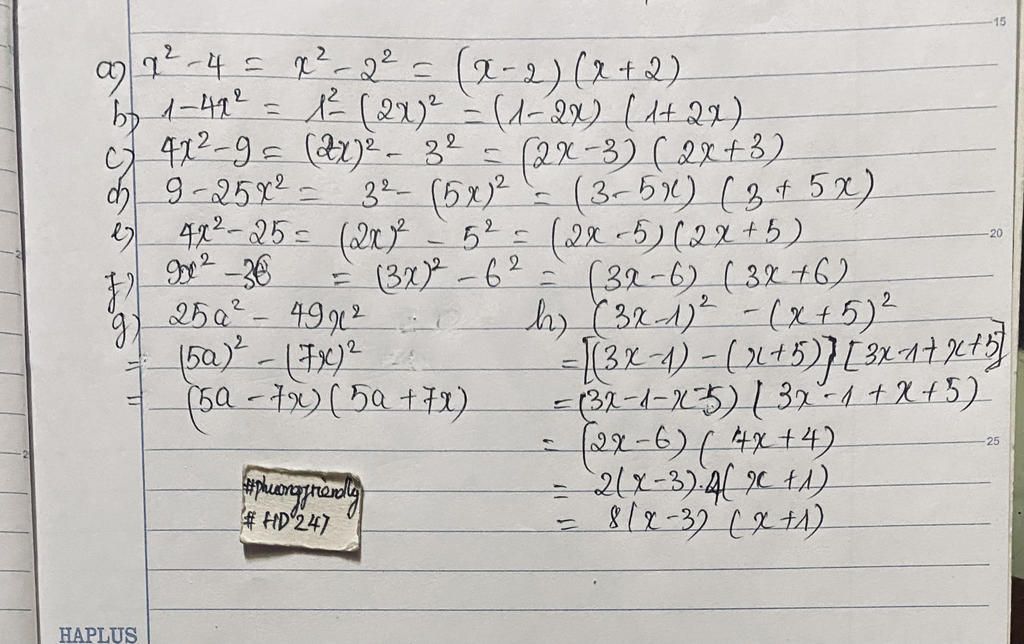 15
a) x² - 4 = x² - 2² = (x - 2) (x + 2)
b) 1 - 4x² = 1² - (2x)² = (1 - 2x) (1 + 2x)
c) 4x² - 9 = (2x)² - 3² = (2x - 3) (2x + 3)
d) 9 - 25x² = 3² - (5x)² = (3 - 5x) (3 + 5x)
e) 4x² - 25 = (2x)² - 5² = (2x - 5) (2x + 5)
20
f) 9x² - 36 = (3x)² - 6² = (3x - 6) (3x + 6)
g) 25a² - 49x²
= (5a)² - (7x)²
= (5a - 7x) (5a + 7x)
h) (3x - 1)² - (x + 5)²
= [(3x - 1) - (x + 5)] [3x - 1 + x + 5]
= (3x - 1 - x - 5) (3x - 1 + x + 5)
= (2x - 6) (4x + 4)
25
= 2(x - 3) . 4(x + 1)
= 8(x - 3) (x + 1)
#phuongfriendly
# HD247
HAPLUS